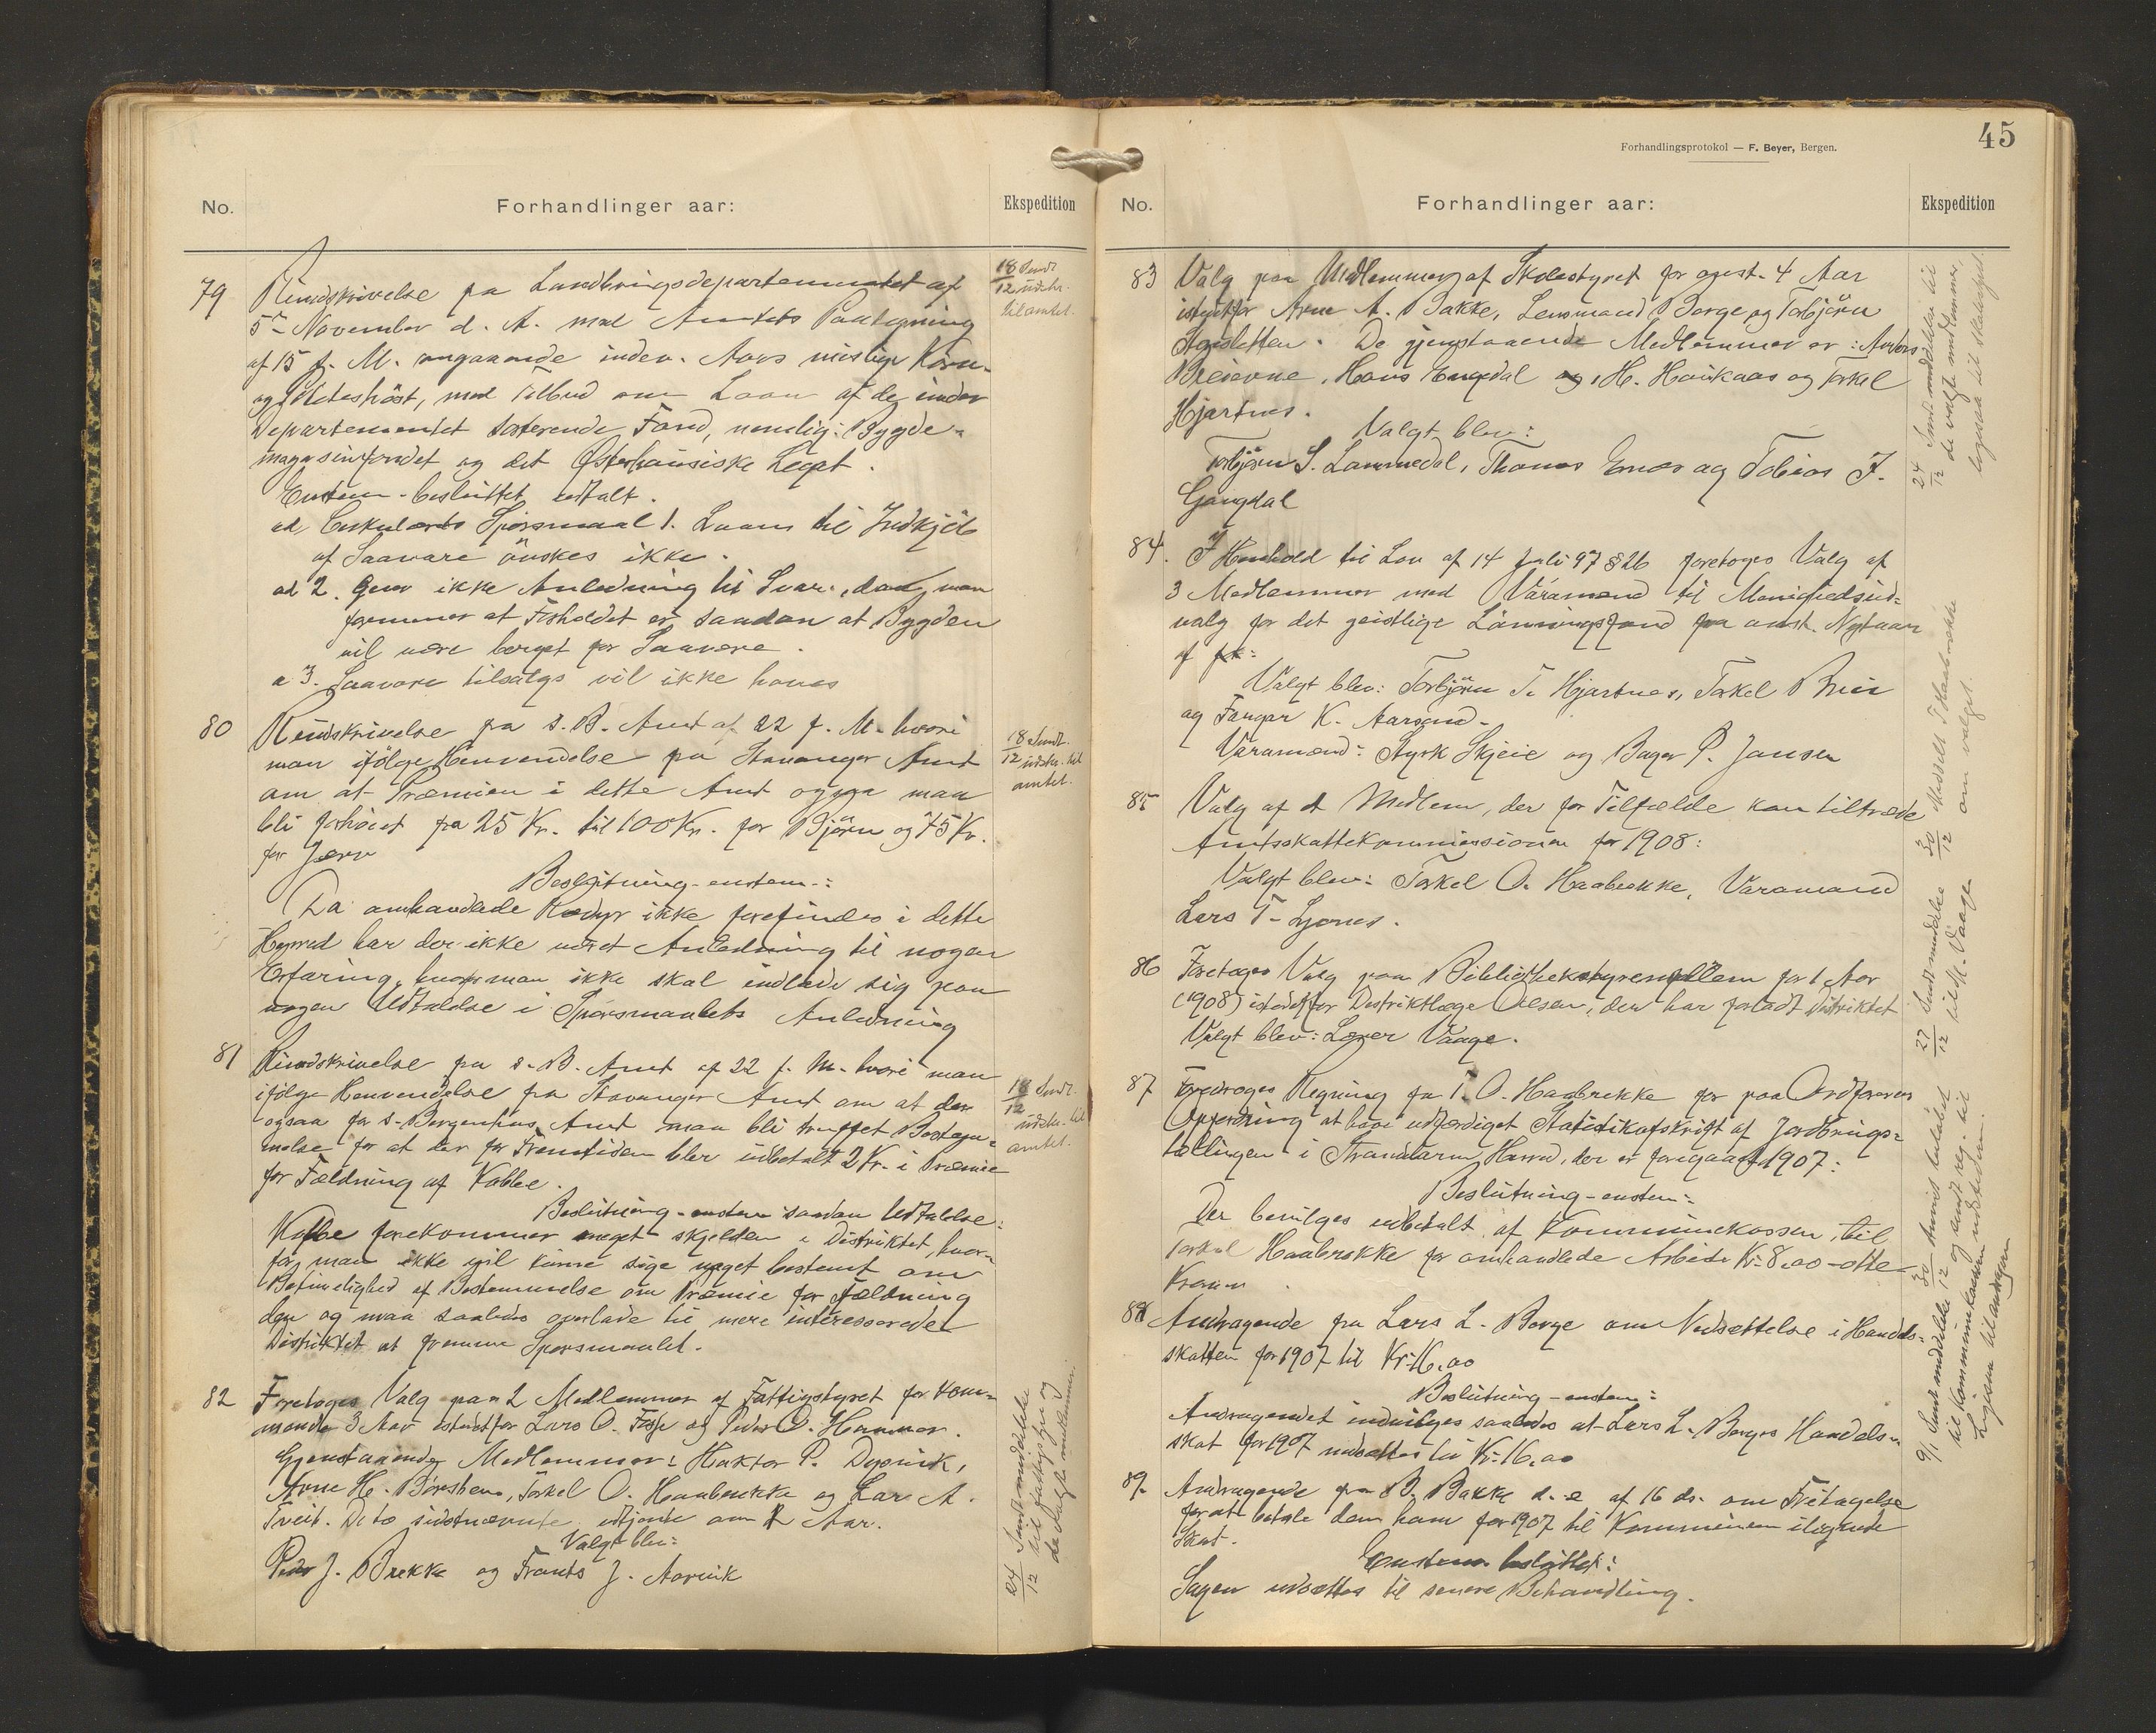 No.
Forhandlinger aar:
Ekspedition
79
Rundskrivelse fra Landbrugsdepartementet af
5te November d. A. med Amtets Paategning
af 15 f. M. angaaende indev. Aars mislige Korn-
og Poteteshöst, med Tilbud om Laan af de under
Departementet sorterende Fond, nemlig: Bygde-
magasinfondet og det Østerhausiske Legat.
Enstem. besluttet
ad, Cirkulærets Spörsmaal 1. Laan til Indkjöb
af Saavare önskes ikke.
ad 2. Giver ikke Anledning til Svar, man
formener at Forholdet er saadan at Bygden
vil være berget for Saavare.
a 3. Saavare tilsalgs vil ikke haves
18/12 Sendt
udskr.
til amtet.
80
Rundskrivelse fra S. B. Amt af 22 f. M. hvori
man ifölge Henvendelse fra Stavanger Amt
om at Præmien i dette Amt ogsaa maa
bli forhöiet fra 25 Kr. til 100 Kr. for Björn og 75 Kr.
for Jærv
Beslutning - enstem.:
Da omhandlede Rovdyr ikke forefindes i dette
Herred har der ikke været Anledning til nogen
Erfaring, hvorfor man ikke skal indlade sig paa
nogen Udtalelse i Spörsmaalets Anledning
18/12 Sendt
udskr. til
amtet.
81
Rundskrivelse fra S. B. Amt af 22 f. M. hvori man
ifölge Henvendelse fra Stavanger Amt om at der
ogsaa for S. Bergenhus Amt maa bli truffet Bestem-
melse for at der for Fremtiden blev udbetalt 2 Kr. i Præmie
for Fældning af Kobbe.
Beslutning - enstem saadan Udtalelse:
Kobbe forekommer meget skjelden i Distriktet, hvor-
for man ikke vil kunne sige noget bestemt om
Betimelighed af Bestemmelse om Præmie for Fældning
den og maa saaledes overlade til mere interesserede
Distrikter at fremme Spörsmaalet.
18/12 Sendt
udskr. til
amtet.
82
Foretoges Valg paa 2 Medlemmer af Fattigstyret for kom-
mende 3 Aar istedetfor Lars O. Fosse og Peder O. Hammer.
Gjenstaaende Medlemmer: Haktor P. Dypvik,
Arne H. Börsheim, Torkel O. Haabrekke og Lars A.
Tveit. De to sidstnævnte udtjente om 1 Aar.
Valgt blev:
Peder J. Brekke og Frants J. Aarvik
24/12 Sendt meddelelse
til fattigstyre og
de valgte medlemmer.
Forhandlingsprotokol — F. Beyer, Bergen.
45
No.
Forhandlinger aar:
Ekspedition
83
Valg paa Medlemmer af Skolestyret for egest. 4 Aar
istedetfor Arne A. Bakke, Lensmand Berge og Torbjörn
Øgsletten. De gjenstaaende Medlemmer er: Anders
Breievne, Hans Engedal og, H. Haukaas og Torkel
Hjartnes.
Valgt blev:
Torbjörn S. Lammedal, Thomas Ernes og Tobias J.
Gangdal
24/12 Sendt meddelelse til
de valgte medlemmer,
ligesaa til skolestyret
84.
I Henhold til Lov af 14 Juli 97 § 26 foretoges Valg af
3 Medlemmer med Varamænd til Menighedsud-
valg for det geistlige Lönningsfond fra anst. Nytaar
af
Valgt blev: Torbjörn T. Hjartnes, Torkel Brei
og Fangar K. Aarsand.
Varamænd: Styrk Skjeie og Bager P. Jansen
85
Valg af et Medlem, der for Tilfælde kan tiltræde
Amtsskattekommissionen for 1908:
Valgt blev: Torkel O. Haabrekke, Varamand
Lars T. Ljones.
30/12 Meddelt T. Haabrekke
om valget.
86
Foretoges Valg paa Bibliothekstyremedlem for 1 Aar
(1908) istedetfor Distriktslæge Olesen, der har forladt Distriktet
Valgt blev: Lærer Vaage.
27/12 Sendt meddelelse
til M. Vaage
87
Foredroges Regning fra T. O. Haabrekke for paa Ordförerens
Opfordring at have udfærdiget Statistikafskrift af Jordbrugs-
tællingen i Strandebarm Herred, der er foregaaet 1907:
Beslutning - enstem:
Der bevilges udbetalt af Kommunekassen til
Torkel Haabrekke for omhandlede Arbeide Kr. 8,00 - otte
Kroner.
30/12 anvist beløbet
og sendt reg. til
kommunekassen
88
Andragende fra Lars L. Berge om Nedsættelse i Handels-
skatten for 1907 til Kr. 16,00
Beslutning - enstem:
Andragendet indvilges saaledes at Lars L. Berges Handels-
skat for 1907 nedsættes til Kr. 16,00
9/1 Sendt meddelelse
til kommunekassen
Ligesaa til ansögeren
89.
Andragende fra B. Bakke d. e. af 16 ds. om Fritagelse
for at betale den ham for 1907 til Kommunen ilagte
Skat.
Enstem. besluttet:
Sagen udsættes til senere Behandling.